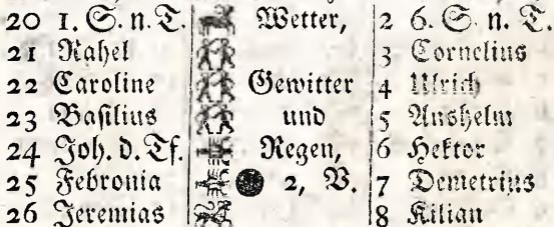 20 1. S. n. T. Wetter, 2 6. S. n. T.
21 Rahel 3 Cornelius
22 Caroline Gewitter 4 Ulrich
23 Baſilius und 5 Anshelm
24 Joh. d. Tf. Regen, 6 Hektor
25 Febronia 2, V. 7 Demetrius
26 Jeremias 8 Kilian